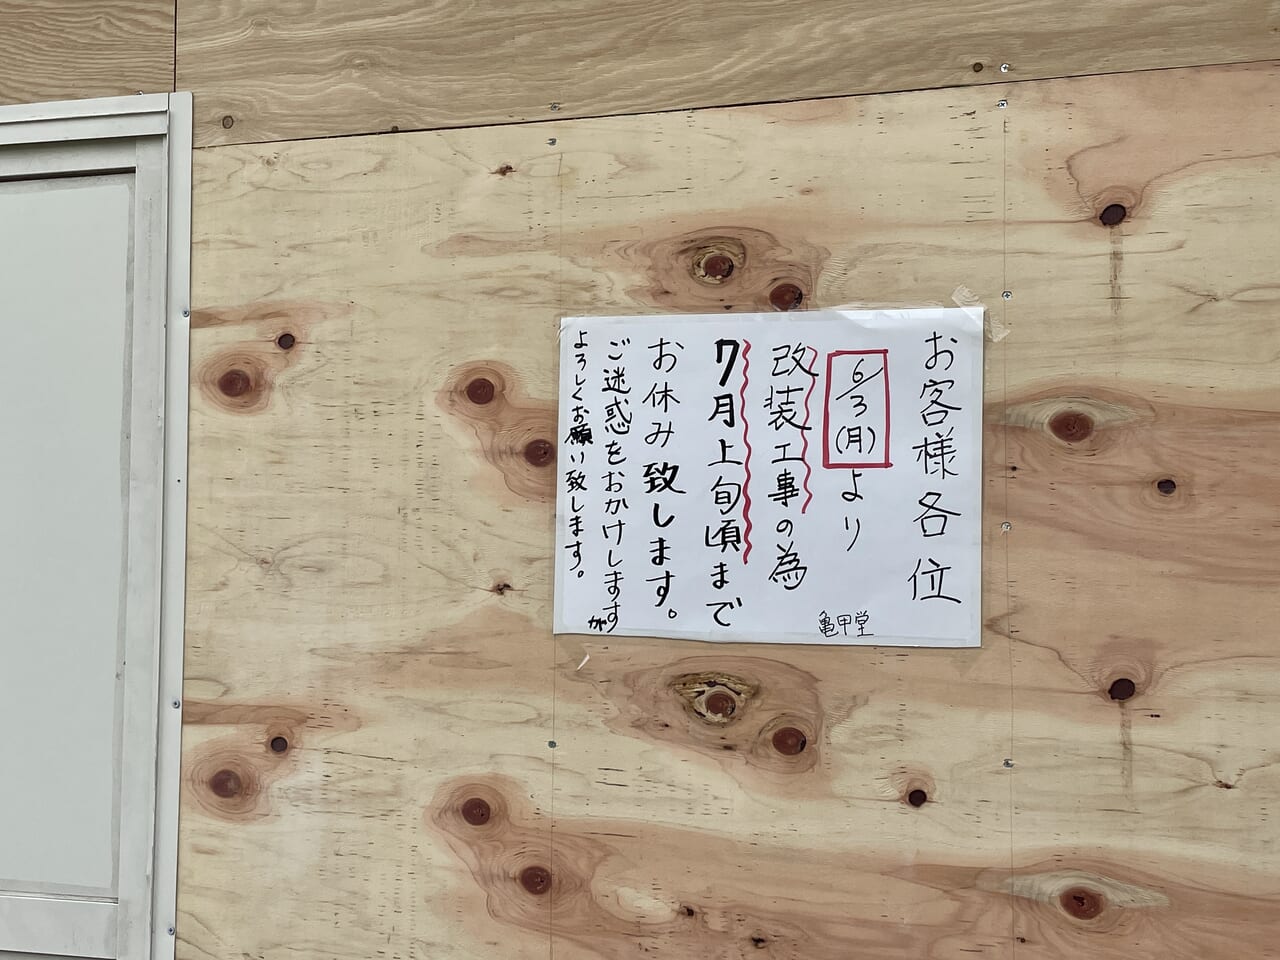 お客様各位
6/3(月)より
改装工事の為
7月上旬頃まで
お休み致します。
ご迷惑をおかけしますが
よろしくお願い致します。
亀甲堂